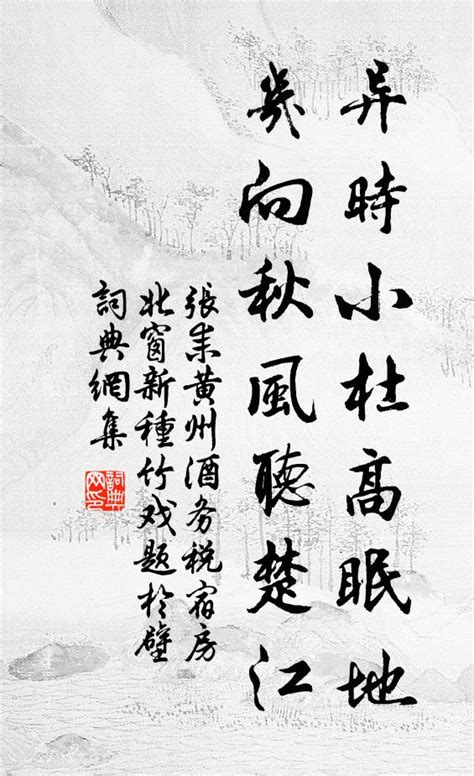 異時小杜高眠地
幾向秋風聽楚江
張耒黃州酒务税宿房
北窗新種竹戏題於壁
詞典網集
詞典网印